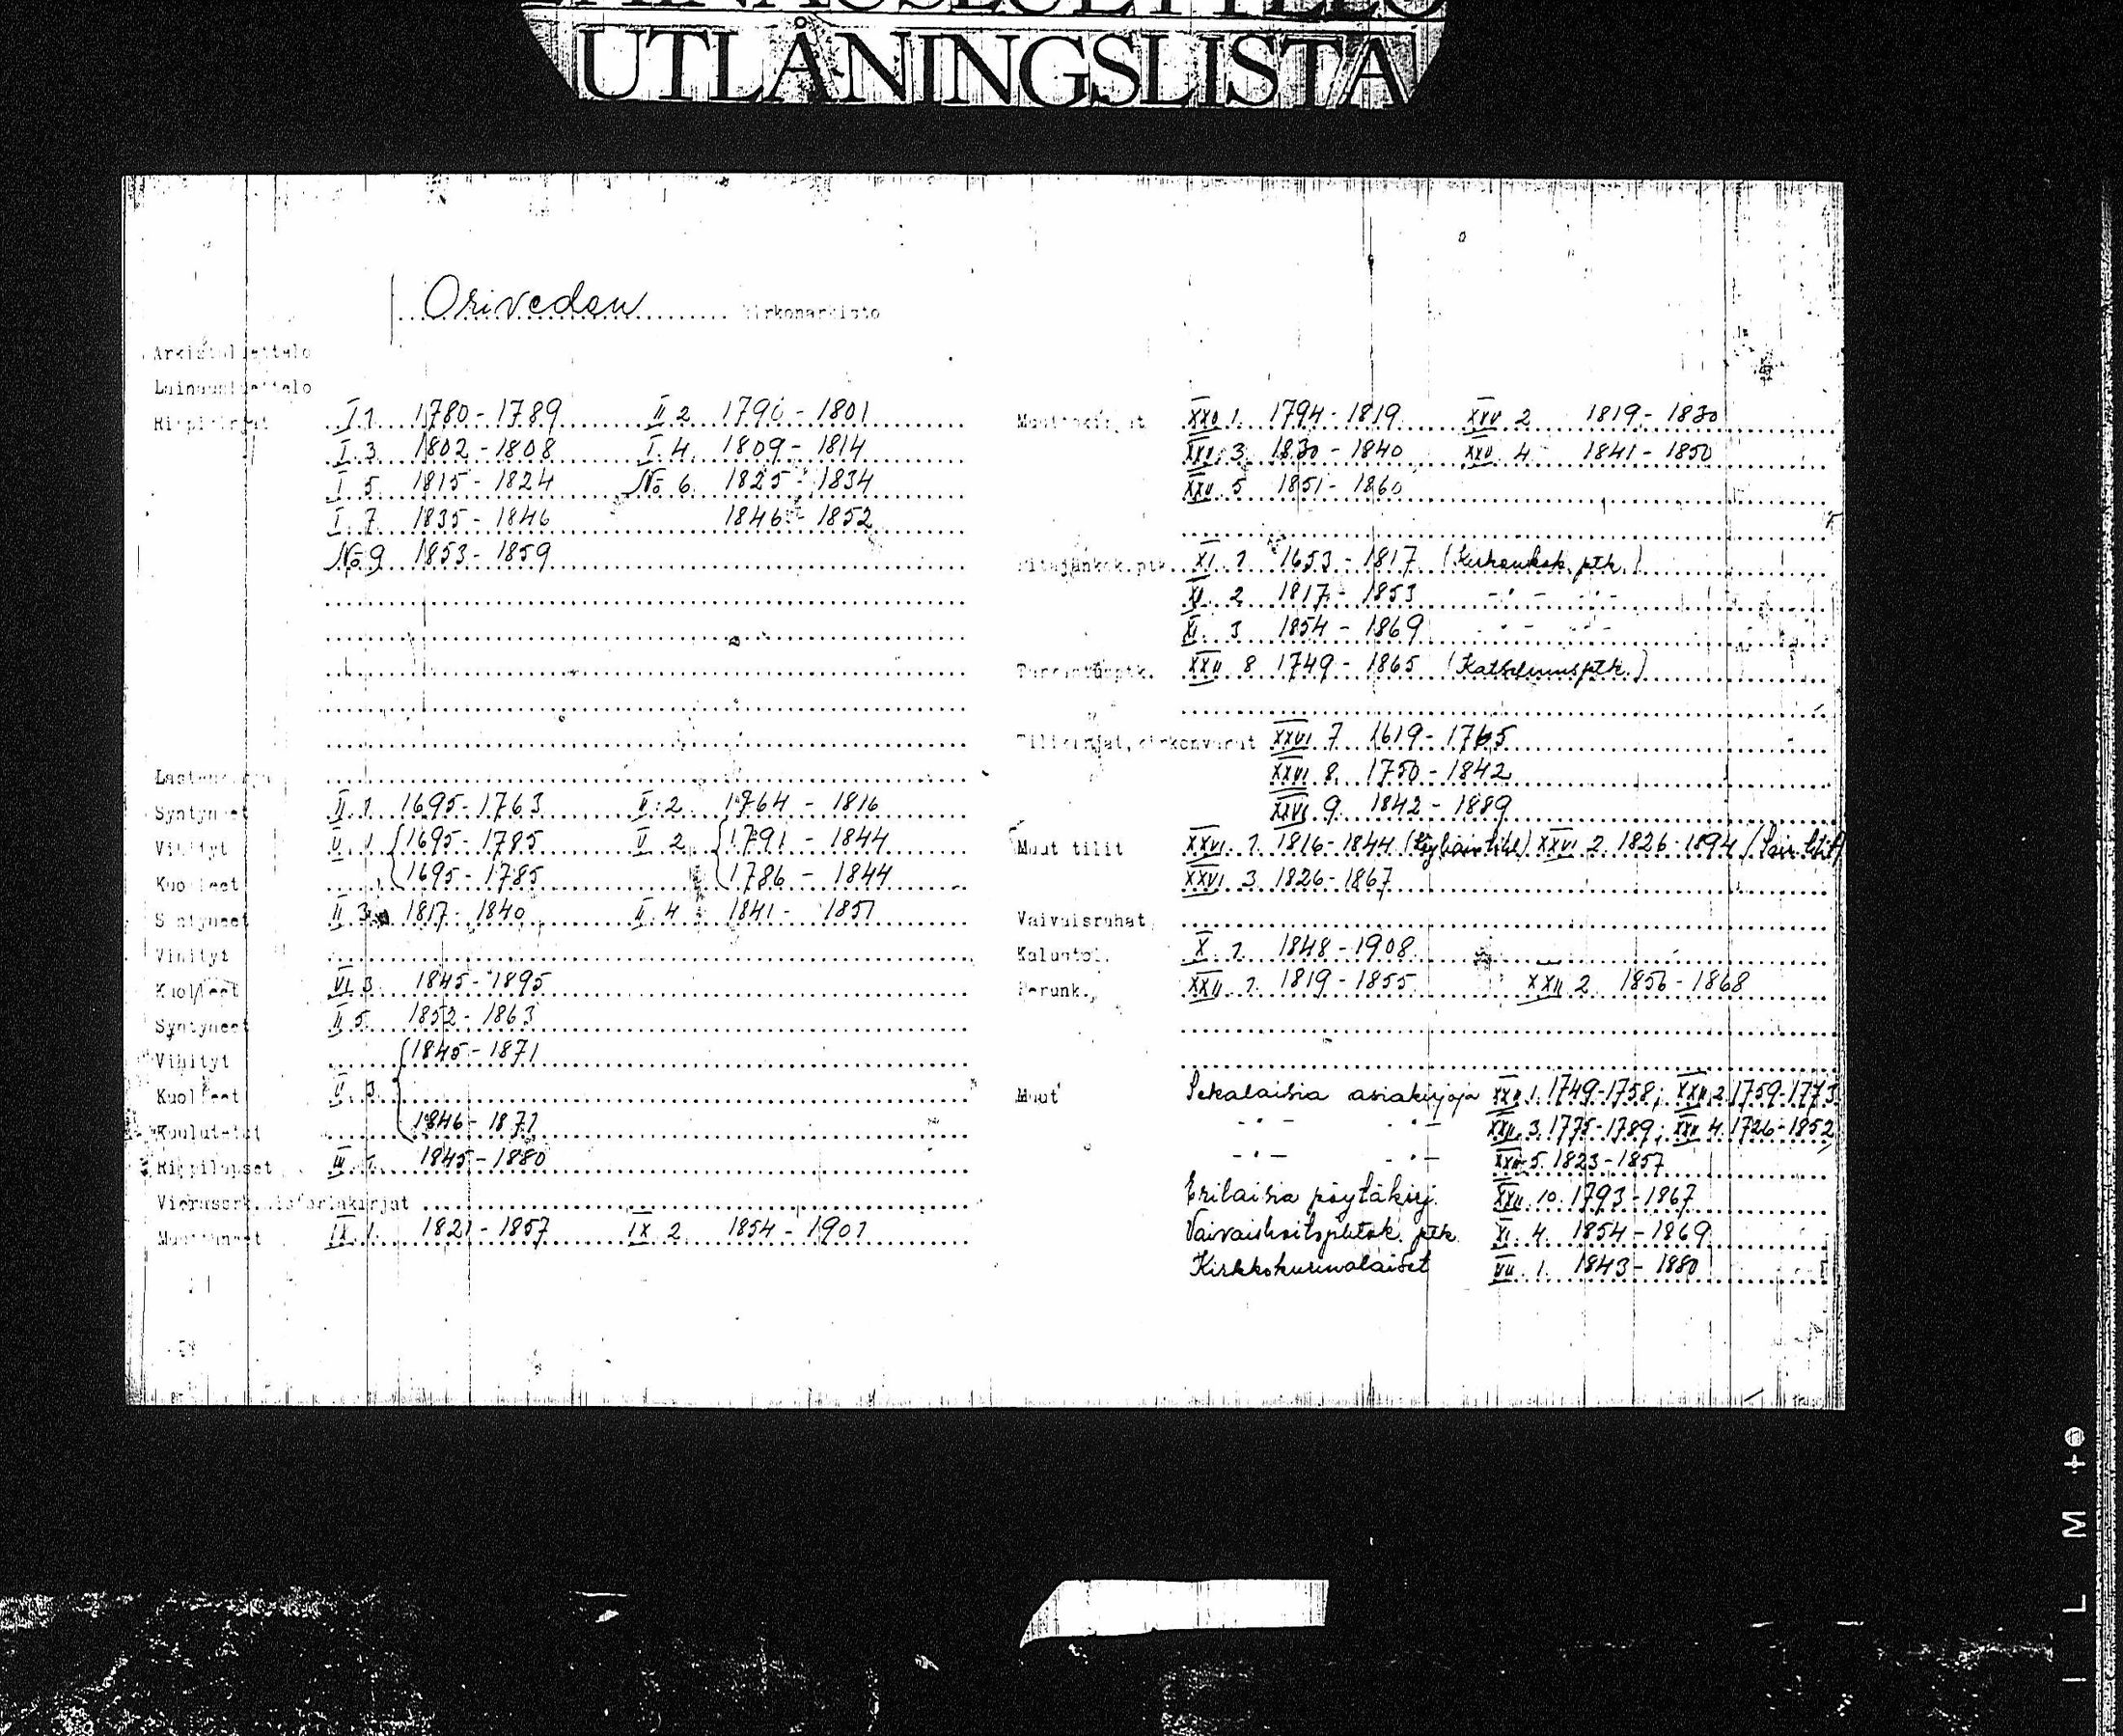 UTLÅNINGSLISTA
Oriveden kirkonarkisto
Arkistoluettelo
Lainausluettelo
Rippikirjat I 1 1780 - 1789 II 2 1790 - 1801
I 3 1802 - 1808 I 4 1809 - 1814
I 5 1815 - 1824 No 6 1825 - 1834
I 7 1835 - 1846 1846 - 1852
No 9 1853 - 1859
Lastenkirja
Syntyneet II 1 1695 - 1763 II 2 1764 - 1816
Vihityt V 1 1695 - 1785 V 2 1791 - 1844
Kuolleet 1695 - 1785 1786 - 1844
Syntyneet II 3 1817 - 1840 II 4 1841 - 1851
Vihityt
Kuolleet VI 3 1845 - 1895
Syntyneet II 5 1852 - 1863
Vihityt 1845 - 1871
Kuolleet V 3
Kuulutetut 1846 - 1871
Rippilapset III 1 1845 - 1880
Vierasserk.
Muuttaneet IX 1 1821 - 1857 IX 2 1854 - 1901
Muuttokirjat XXV 1 1794 - 1819 XXV 2 1819 - 1830
XXV 3 1830 - 1840 XXV 4 1841 - 1850
XXV 5 1851 - 1860
Pitäjänkok. ptk. XI 1 1653 - 1817 (Kirkonkok. ptk.)
XI 2 1817 - 1853 - " - - " -
XI 3 1854 - 1869 - " - - " -
XXII 8 1749 - 1865 (Katselmusptk.)
Tilikirjat, kirkonvarat XXVI 7 1619 - 1765
XXVI 8 1750 - 1842
XXVI 9 1842 - 1889
Muut tilit XXVI 1 1816 - 1844 XXVI 2 1826 - 1894
XXVI 3 1826 - 1867
Vaivaisrahat
Kalustol. X 1 1848 - 1908
Perunk. XXII 1 1819 - 1855 XXII 2 1856 - 1868
Muut Sekalaisia asiakirjoja XXII 1 1749-1758; XXII 2 1759-1773
- " - - " - XXII 3 1775-1789; XXII 4 1726-1852
- " - - " - XXII 5 1823-1857
Erilaisia pöytäkirj. XXII 10 1793-1867
Vaivaishoitojohtok. ptk XI 4 1854 - 1869
Kirkkokurinalaiset VII 1 1843 - 1880